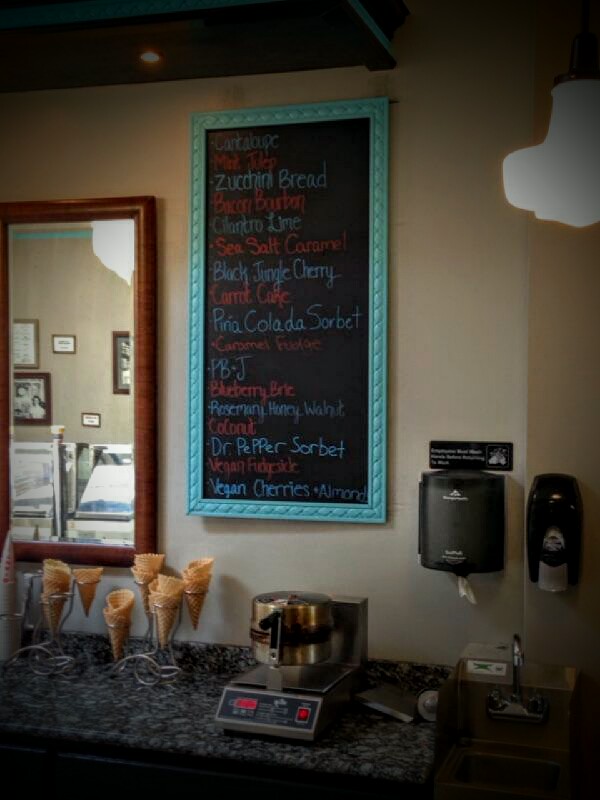 ·Cantaloupe
·Mint Julep
·Zucchini Bread
·Bacon Bourbon
·Cilantro Lime
·Sea Salt Caramel
·Black Jungle Cherry
·Carrot Cake
·Piña Colada Sorbet
·Caramel Fudge
·PB·J
·Blueberry Brie
·Rosemary Honey Walnut
·Coconut
·Dr. Pepper Sorbet
·Vegan Fudgesicle
·Vegan Cherries + Almond
Employees Must Wash
Hands Before Returning
To Work